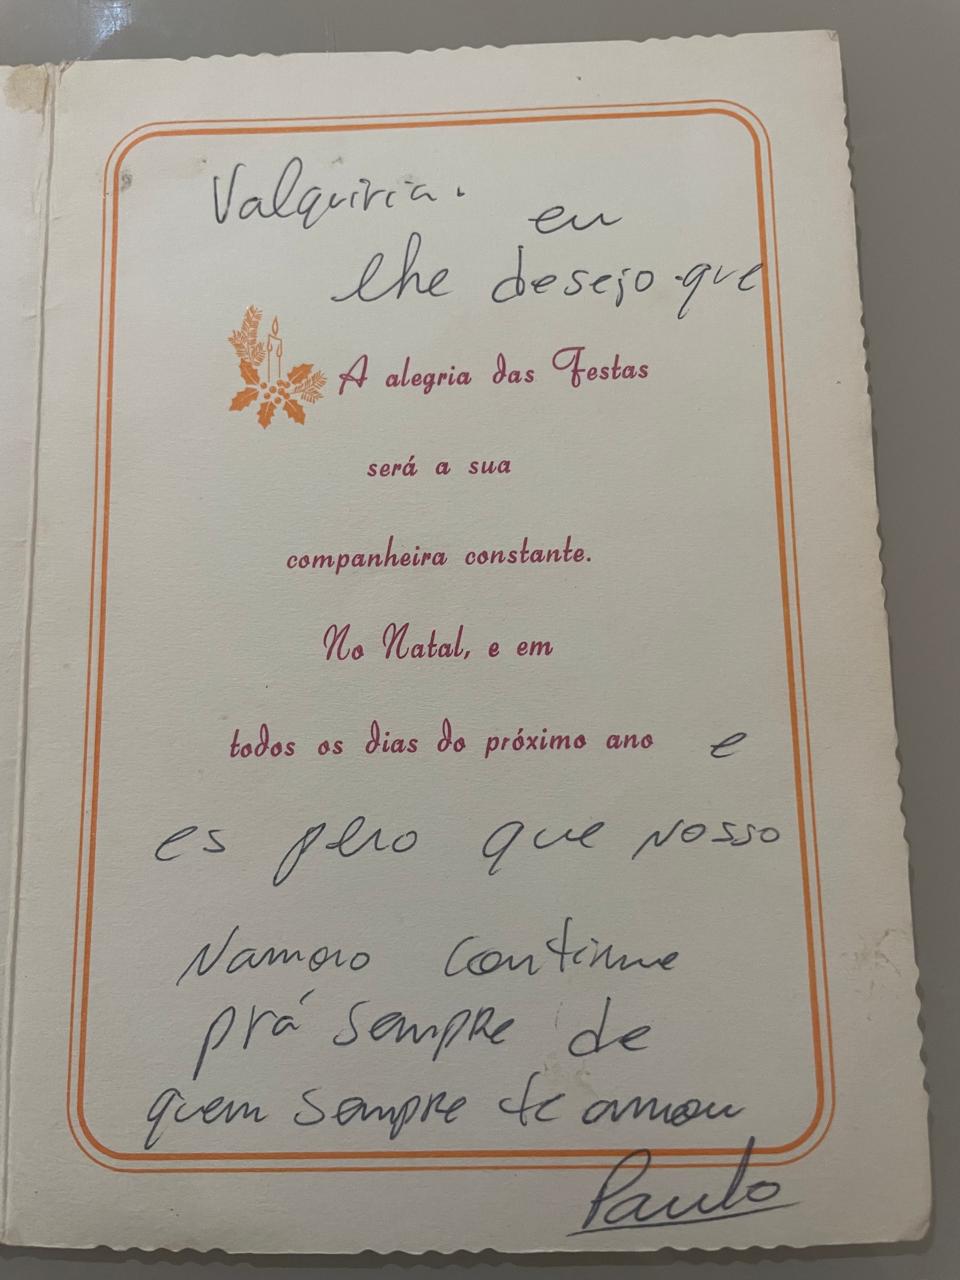 Valquiria.
eu
lhe desejo que
A alegria das Festas
será a sua
companheira constante.
No Natal, e em
todos os dias do próximo ano e
espero que nosso
Namoro continue
prá sempre de
quem sempre te amou
Paulo